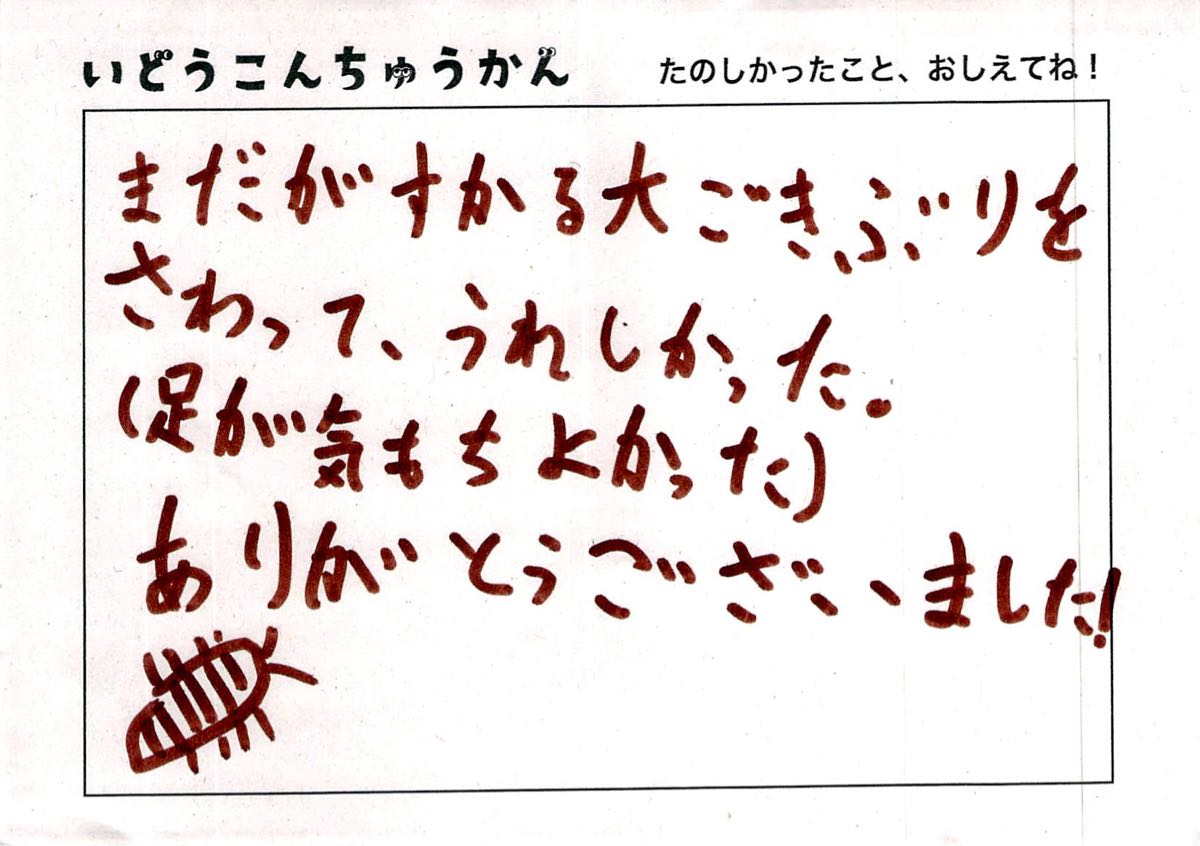 いどうこんちゅうかん
たのしかったこと、おしえてね!
まだがすかる大ごきぶりを
さわって、うれしかった。
(足が気もちよかった)
ありがとうございました!